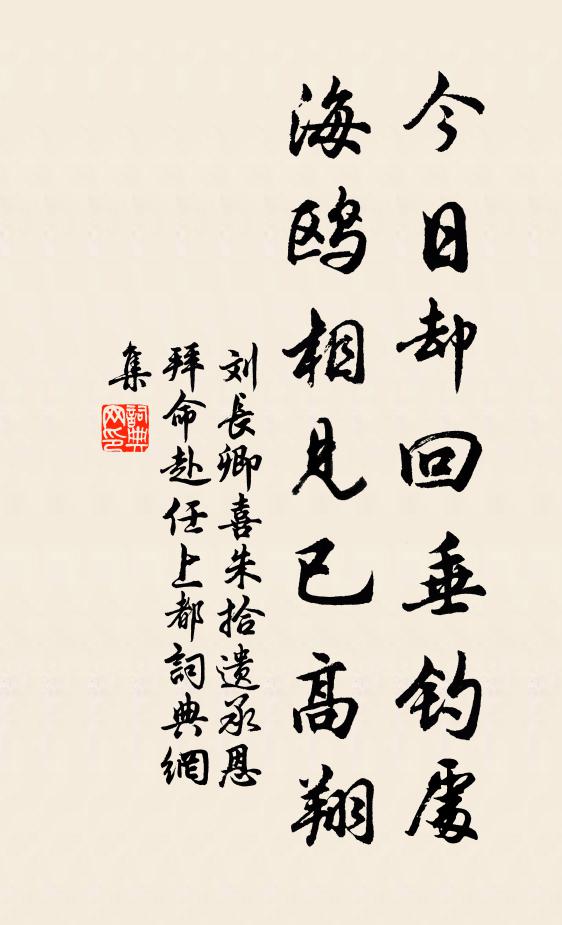 今日却回垂钓處
海鸥相見已高翔
刘長卿喜朱拾遗承恩
拜命赴任上都詞典網
集
詞典網印